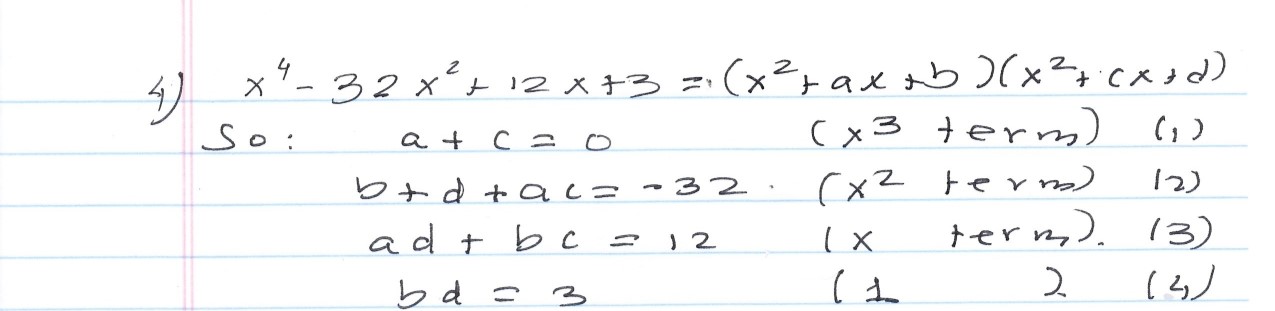 4) x⁴ - 32x² + 12x + 3 = (x² + ax + b)(x² + cx + d)
So: a + c = 0 (x3 term) (1)
b + d + ac = -32. (x2 term) (2)
ad + bc = 12 (x term). (3)
bd = 3 (1 ) (4)